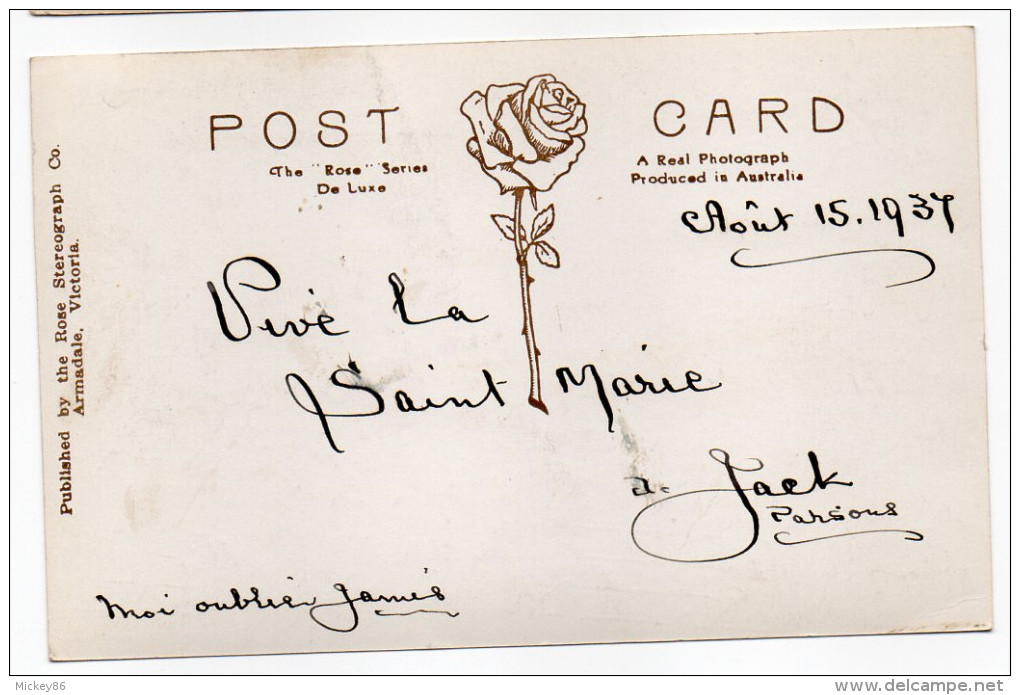 POST CARD
The "Rose" Series
De Luxe
A Real Photograph
Produced in Australia
Published by the Rose Stereograph Co.
Armadale, Victoria.
Août 15.1937
Vive La
Saint Marie
a Jack
Parsons
Moi oublier Jamés
Mickey86
delcampe.net